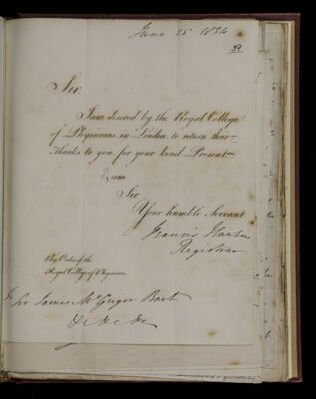 June 25 1834
Sir,
I am desired by the Royal College
of Physicians in London to return their
Thanks to you for your kind Present
I am
Sir,
Your humble Servant
Francis Hawkins
Registrar
By Order of the
Royal College of Physicians
To Sir James McGrigor Bart
&c &c &c